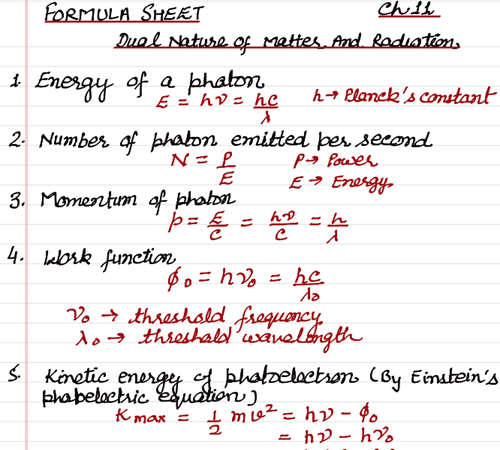 FORMULA SHEET Ch 11
Dual Nature of Matter And Radiation
1. Energy of a photon
E = hν = hc/λ h → Planck's constant
2. Number of photon emitted per second
N = P/E P → Power
E → Energy
3. Momentum of photon
p = E/c = hν/c = h/λ
4. Work function
ϕ₀ = hν₀ = hc/λ₀
ν₀ → threshold frequency
λ₀ → threshold wavelength
5. Kinetic energy of photoelectron (By Einstein's
photoelectric equation)
K max = 1/2 mv² = hν - ϕ₀
= hν - hν₀